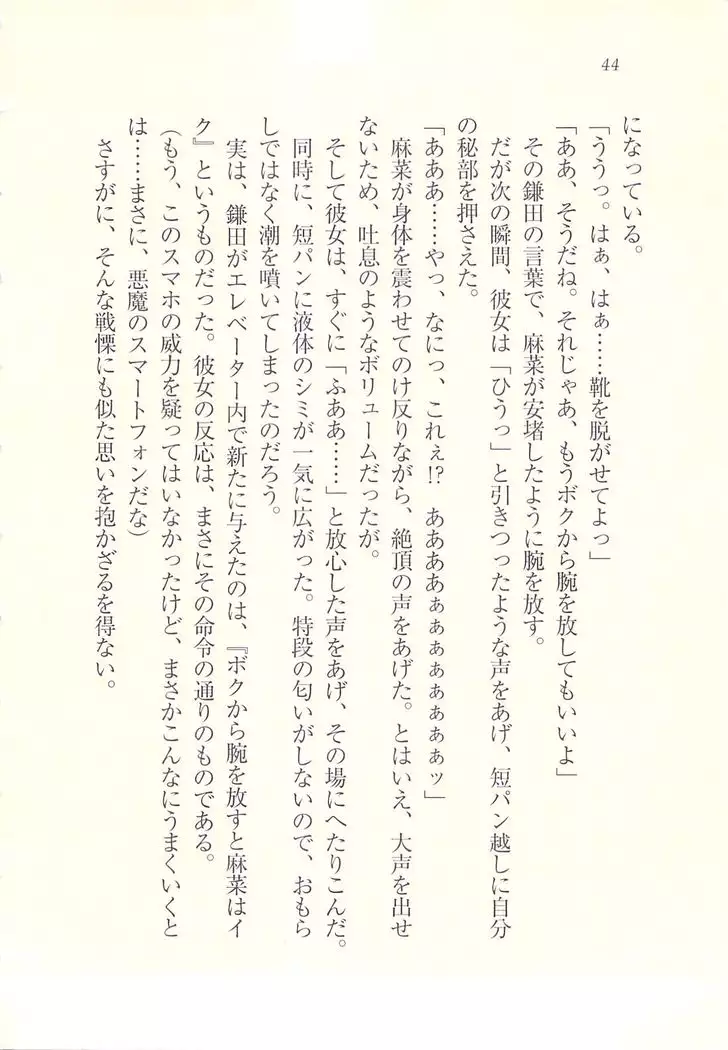 44
になっている。
「ううっ。はぁ、はぁ……靴を脱がせてよっ」
「ああ、そうだね。それじゃあ、もうボクから腕を放してもいいよ」
その鎌田の言葉で、麻菜が安堵したように腕を放す。
だが次の瞬間、彼女は「ひうっ」と引きつったような声をあげ、短パン越しに自分
の秘部を押さえた。
「あああ……やっ、なにっ、これぇ!?　ああああぁぁぁぁぁぁぁッ」
麻菜が身体を震わせてのけ反りながら、絶頂の声をあげた。とはいえ、大声を出せ
ないため、吐息のようなボリュームだったが。
そして彼女は、すぐに「ふああ……」と放心した声をあげ、その場にへたりこんだ。
同時に、短パンに液体のシミが一気に広がった。特段の匂いがしないので、おもら
しではなく潮を噴いてしまったのだろう。
実は、鎌田がエレベーター内で新たに与えたのは、『ボクから腕を放すと麻菜はイ
ク』というものだった。彼女の反応は、まさにその命令の通りのものである。
（もう、このスマホの威力を疑ってはいなかったけど、まさかこんなにうまくいくと
は……まさに、悪魔のスマートフォンだな）
さすがに、そんな戦慄にも似た思いを抱かざるを得ない。